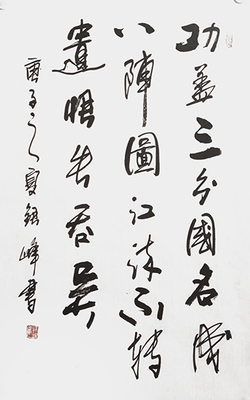 功盖三分國名成
八陣圖江流不轉
遺恨失吞吳
庚子之夏峰書